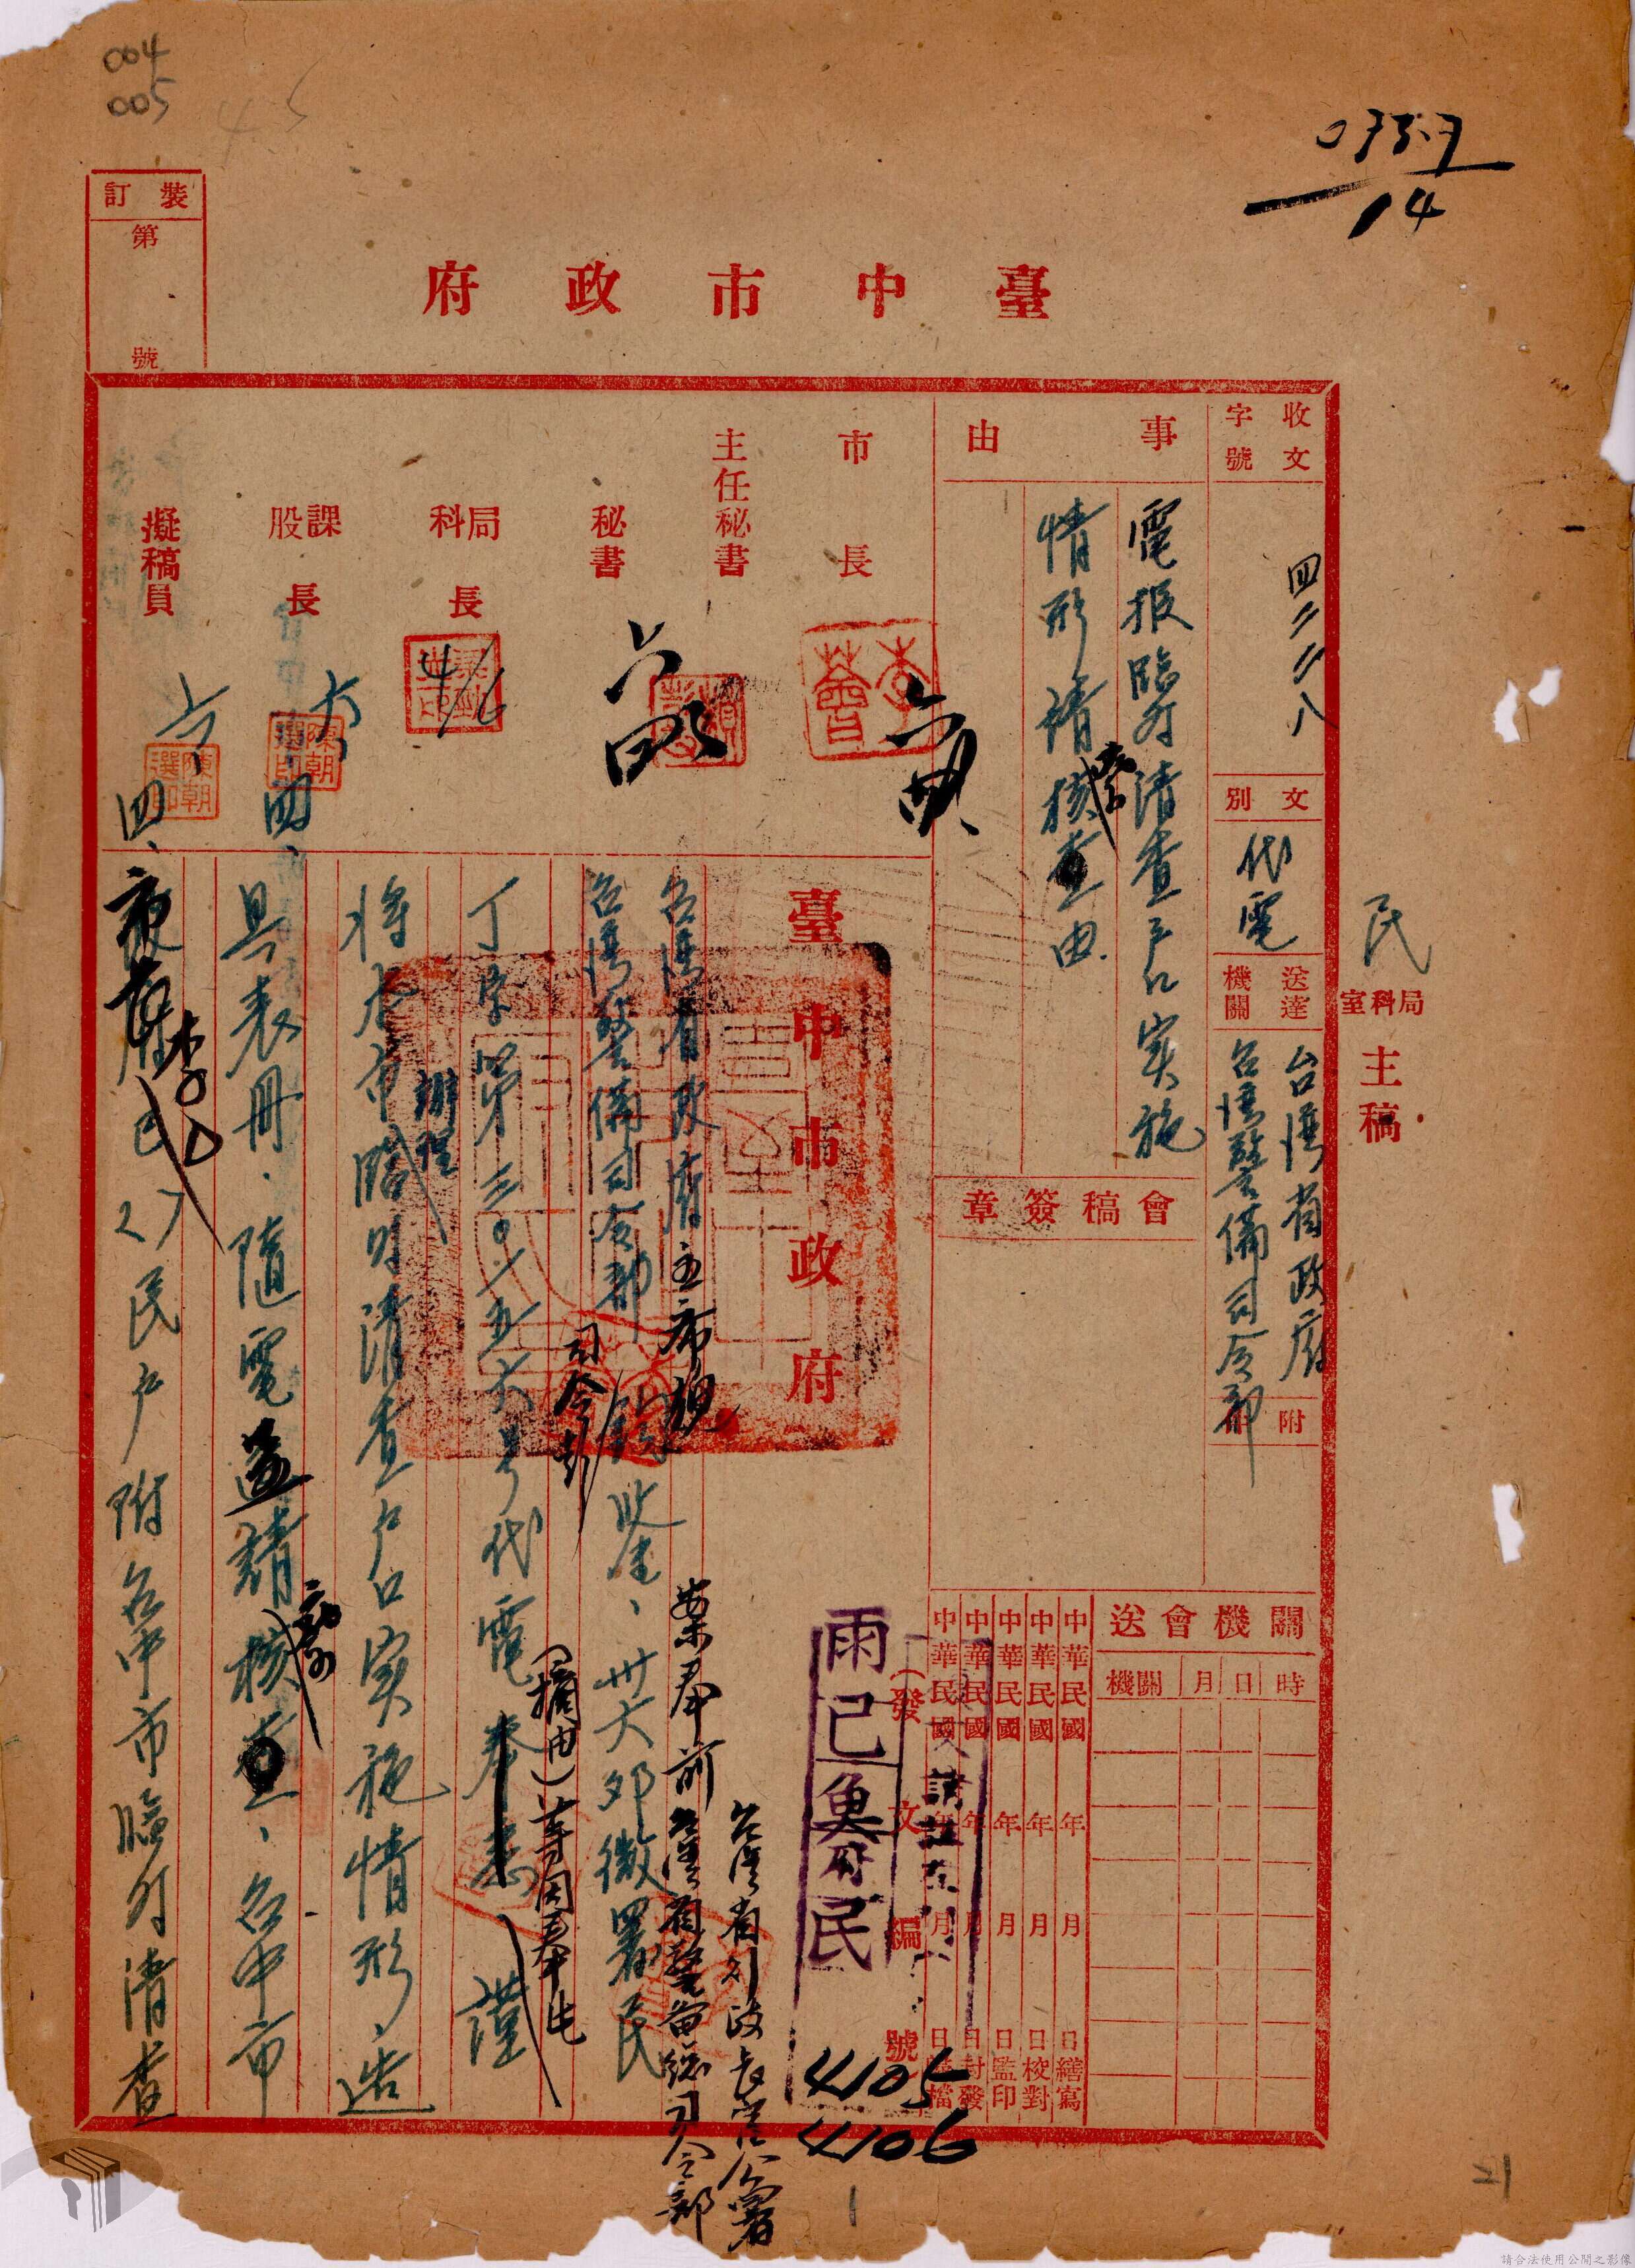 004
005
0357
14
裝訂
第
號
臺中市政府
民
局科室
主稿
收文
字號
四二二八
文別
代電
送達
機關
台灣省政府
台灣警備司令部
附
事由
電报臨时清查户口实施
情形請核察由
會稿簽章
關機會送
時
日
月
機關
中華民國 年 月 日繕寫
中華民國 年 月 日校對
中華民國 年 月 日監印
中華民國 年 月 日封發
中華民國 年 月 日歸檔
(發文編號)
兩己魚府民
4105
4106
市長
主任秘書
秘書
局科長
課股長
擬稿員
陳朝選印
陳朝選印
臺中市政府
台灣省政府主席魏
台灣警備司令部司令彭鈞鑒、
案奉前台灣省行政長官公署
台灣省警備總司令部
卅六卯微署民
丁字第三〇一五六号代電
(摘由)等因奉此
謹
將本市辦理臨时清查户口实施情形、造
具表冊.隨電
請核察
台中市
民户附台中市臨时清查
21
請合法使用公開之影像